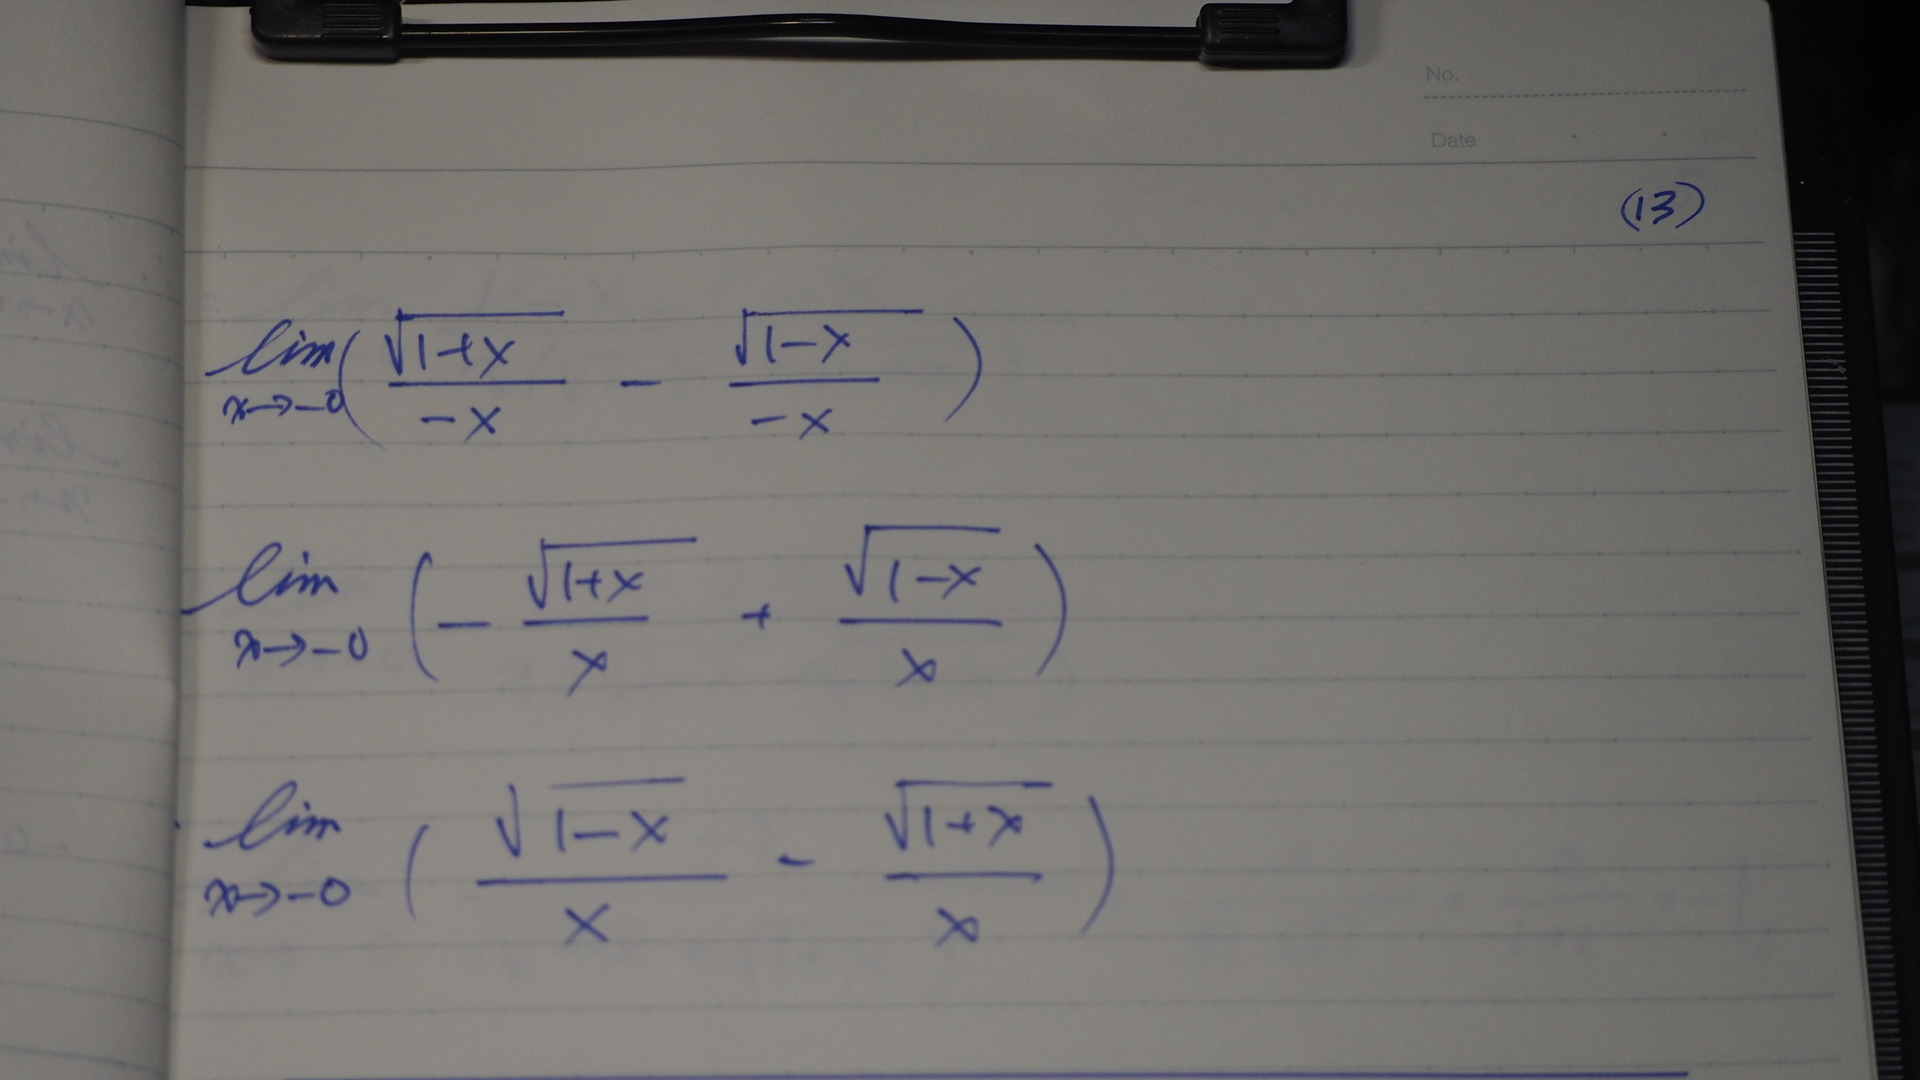 No.
Date
(13)
lim x→-0 ( √(1+x) / -x - √(1-x) / -x )
lim x→-0 ( - √(1+x) / x + √(1-x) / x )
lim x→-0 ( √(1-x) / x - √(1+x) / x )